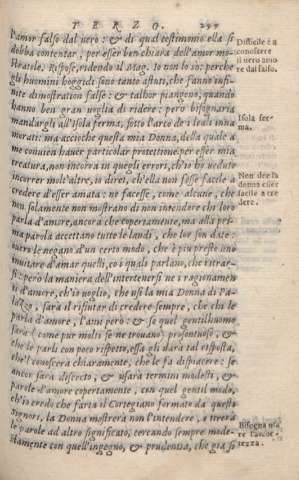 TERZO.
l'amor falso dal uero: & di qual testimonio ella si
debba contentar, per esser ben chiara dell'amor mo-
stratole. Rispose, ridendo il Mag. Io non lo so: perche
gli huomini hoggidi sono tanto astuti, che fanno infi-
nite dimostration false: & talhor piangono, quando
hanno ben gran uoglia di ridere: però bisognaria
mandargli all'Isola ferma, sotto l'arco de i leali inna
morati: ma accioche questa mia Donna, della quale a
me conuien hauer particolar protettione per esser mia
creatura, non incorra in quegli errori, ch'io ho ueduto
incorrer molt'altre, io direi, ch'ella non fosse facile a
creder d'esser amata: ne facesse, come alcune, che
non solamente non mostrano di non intendere chi lor
parla d'amore, ancora che copertamente, ma alla pri-
ma parola accettano tutte le laudi, che lor son date:
ouero le negano d'un certo modo, che è piu presto uno
inuitare d'amar quelli, co i quali parlano, che ritrar-
si: però la maniera dell'intertenersi ne i ragionamen
ti d'amore, ch'io uoglio, che usi la mia Donna di Pa-
lazzo, sarà il rifiutar di creder sempre, che chi le
parla d'amore, l'ami però: & se quel gentilhuomo
sarà (come pur molti se ne trouano) prosontuoso, &
che le parli con poco rispetto, essa gli darà tal risposta,
che'l conoscerà chiaramente, che le fa dispiacere: se
ancor sarà discreto, & userà termini modesti, &
parole d'amore copertamente, con quel gentil modo,
ch'io credo che faria il Cortegiano formato da questi
Signori, la Donna mostrerà non l'intendere, & tirerà
le parole ad altro significato, cercando sempre mode-
stamente con quell'ingegno, & prudentia, che già si
Difficile è a
conoscere
il uero amo
re dal falso.
Isola fer-
ma.
Non dee la
donna esser
facile a cre
dere.
Bisogna usa
re l'accor-
tezza.